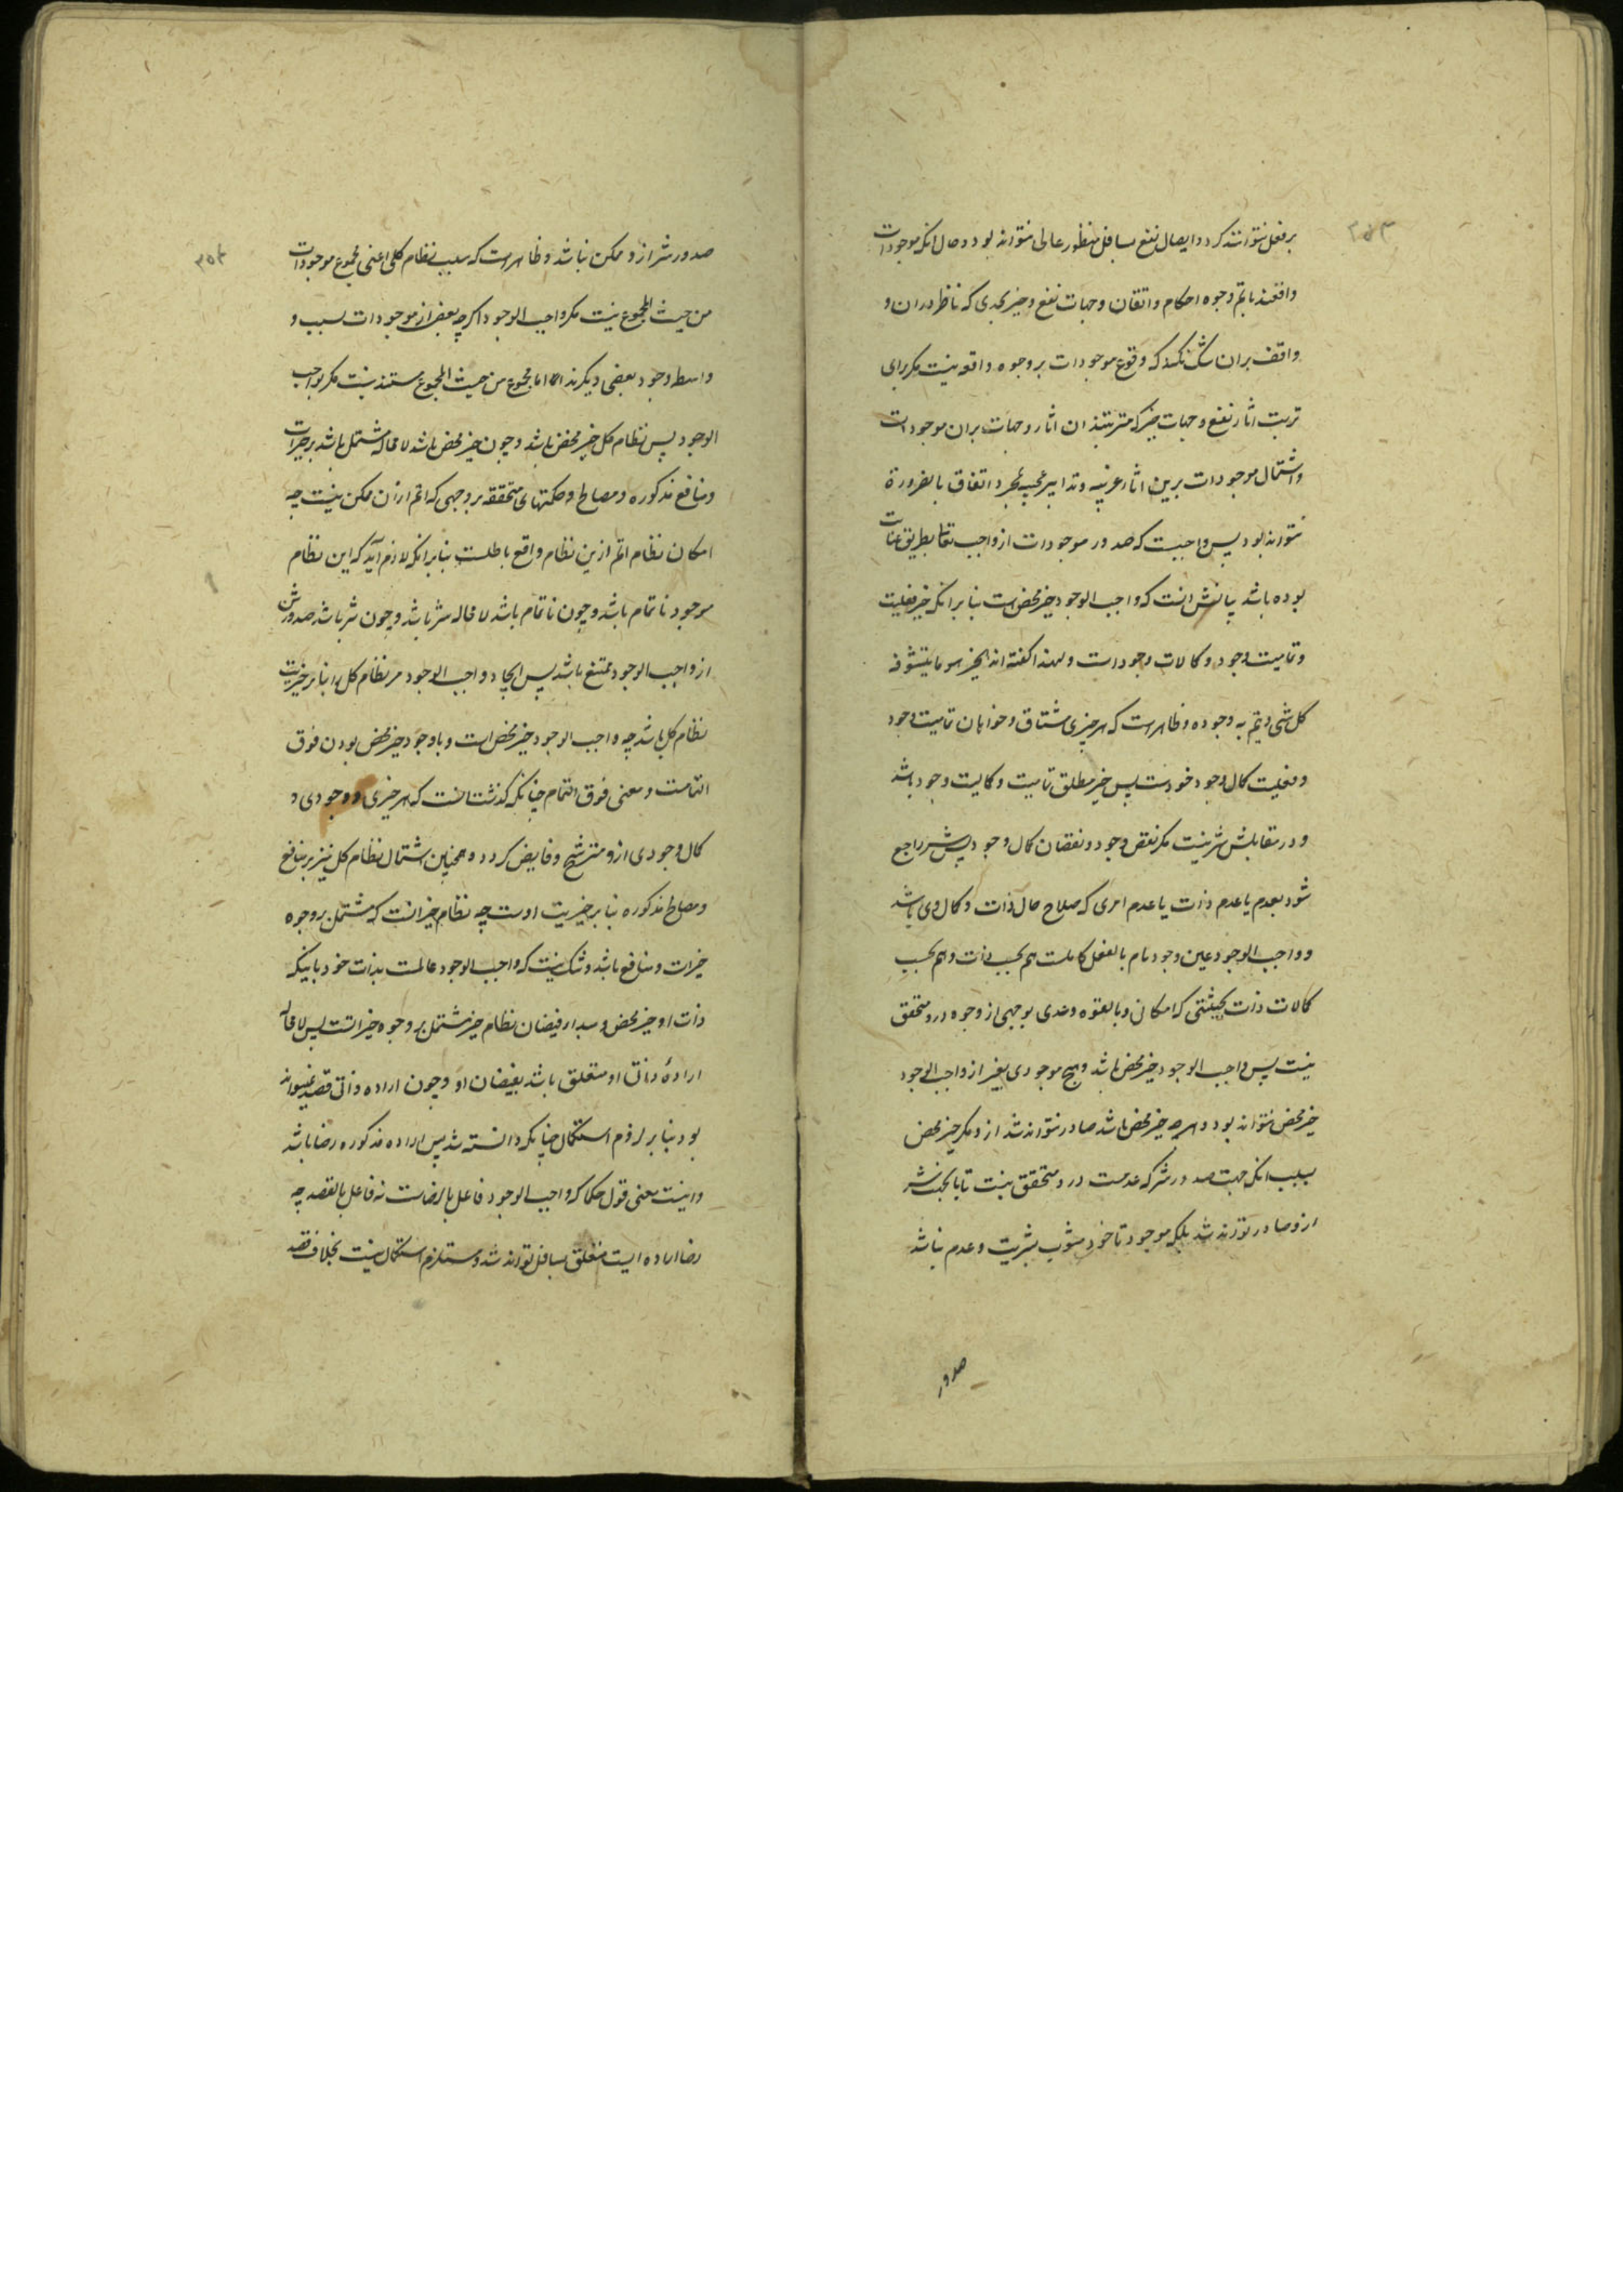 ۳۵۳
بر فعل نتوانند کرد و ایصال نفع بسافل منظور عالی نتواند بود و حال انکه موجودات
واقعند باتم وجوه احکام و اتقان و جهات نفع و خیر بحدی که ناظر دران و
واقف بران شک نکند که وقوع موجودات بر وجوه واقعه نیست مکر برای
ترتب اثار نفع و جهات خیر که مترتبند ان اثار و جهات بران موجودات
و اشتمال موجودات برین اثار غریبه و تدابیر عجیبه بمجرد اتفاق بالضرورة
نتواند بود پس واجبست که صدور موجودات از واجب تعالی بطریق عنایت
بوده باشد بیانش انست که واجب الوجود خیر محض است بنابر انکه خیر فعلیت
و تمامیت وجود و کمالات وجود است و لهذا کفته اند الخیر هو ما یتشوقه
کل شی و یتم به وجوده و ظاهر است که هر چیزی مشتاق و خواهان تمامیت وجود
و فعلیت کمال وجود خود است پس خیر مطلق تمامیت و کمالیت وجود باشد
و در مقابلش شر نیست مکر نقص وجود و نقصان کمال وجود پس شر راجع
شود بعدم یا عدم ذات یا عدم امری که صلاح حال ذات و کمال وی باشد
و واجب الوجود عین وجود تام بالفعل کاملست هم بحسب ذات و هم بحسب
کمالات ذات بحیثیتی که امکانی و بالقوه و عدمی بوجهی از وجوه درو متحقق
نیست پس واجب الوجود خیر محض باشد و هیچ موجودی بغیر از واجب الوجود
خیر محض نتواند بود و هرچه خیر محض باشد صادر نتواند شد ازو مکر خیر محض
بسبب انکه جهت صدور شر که عدمست درو متحقق نیست تا بان جهت شر
ازو صادر تواند شد بلکه موجود تا خود مشوب بشریت و عدم نباشد
صدور
۳۵۴
صدور شر ازو ممکن نباشد و ظاهر است که سبب نظام کلی اعنی مجموع موجودات
من حیث المجموع نیست مکر واجب الوجود اکرچه بعضی از موجودات سبب و
واسطه وجود بعضی دیکرند اما مجموع من حیث المجموع مستند نیست مکر بواجب
الوجود پس نظام کل خیر محض باشد و چون خیر محض باشد لا محاله مشتمل باشد بر خیرات
و منافع مذکوره و مصالح و حکمتهای متحققه بر وجهی که اتم از ان ممکن نیست چه
امکان نظام اتم ازین نظام واقع باطلست بنابر انکه لازم آید که این نظام
موجود ناتمام باشد و چون ناتمام باشد لا محاله شر باشد و چون شر باشد صدورش
از واجب الوجود ممتنع باشد پس ایجاد واجب الوجود مر نظام کل را بنابر خیریت
نظام کل باشد چه واجب الوجود خیر محض است و باوجود خیر محض بودن فوق
التمامست و معنی فوق التمام چنانکه کذشت انست که هر خیری و وجودی و
کمال وجودی ازو مترشح و فایض کردد و همچنین اشتمال نظام کل نیز بر منافع
و مصالح مذکوره بنابر خیریت اوست چه نظام خیر انست که مشتمل بر وجوه
خیرات و منافع باشد و شک نیست که واجب الوجود عالمست بذات خود باینکه
ذات او خیر محض و مبدا فیضان نظام خیر مشتمل بر وجوه خیراتست پس لا محاله
ارادهٔ ذات او متعلق باشد بفیضان او و چون اراده ذاتی قصد نمیتواند
بود بنابر لزوم استکمال چنانکه دانسته شد پس اراده مذکوره رضا باشد
و اینست معنی قول حکما که واجب الوجود فاعل بالرضاست نه فاعل بالقصد چه
رضا اراده ایست متعلق بسافل تواند شد و مستلزم استکمال نیست بخلاف قصد